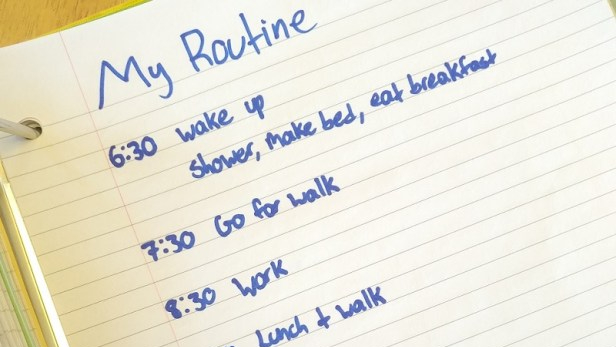 My Routine
6:30 wake up
shower, make bed, eat breakfast
7:30 Go for walk
8:30 Work
Lunch + walk